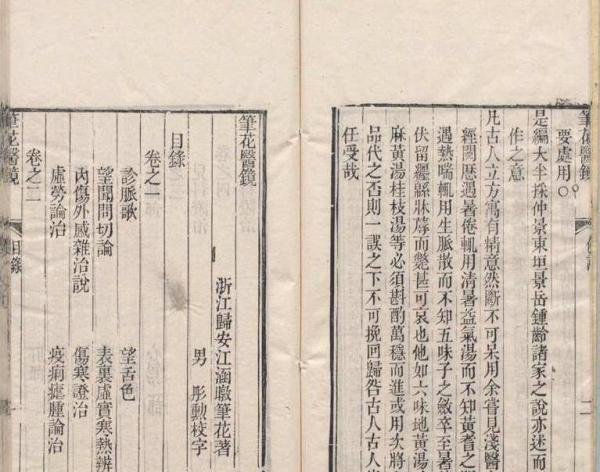 筆花醫鏡
二
要處用○○
是編大半採仲景東垣景岳鍾齡諸家之說亦述而
作之意
凡古人立方寓有精意然斷不可呆用余嘗見淺醫
經閱歷遇暑倦輒用清暑益氣湯而不知黃耆之
遇熱喘輒用生脈散而不知五味子之斂卒至暑
伏留纒緜牀蓐而斃甚可哀也他如六味地黃湯
麻黃湯桂枝湯等必須斟酌萬穩而進或用次將
品代之否則一誤之下不可挽回歸咎古人古人
任受哉
筆花醫鏡
浙江歸安江涵暾筆花著
男 彤勳校字
目錄
卷之一
診脈歌 望舌色
望聞問切論 表裏虛實寒熱辨
內傷外感雜治說 傷寒證治
虛勞論治 疫痢瘧腫論治
卷之二
筆花醫鏡 目錄